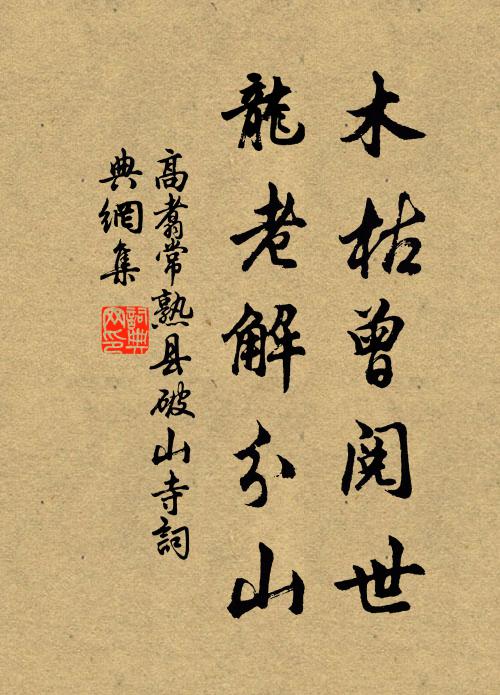 木枯曾阅世
龍老解分山
高翥常熟县破山寺詞
典網集
詞典
网印